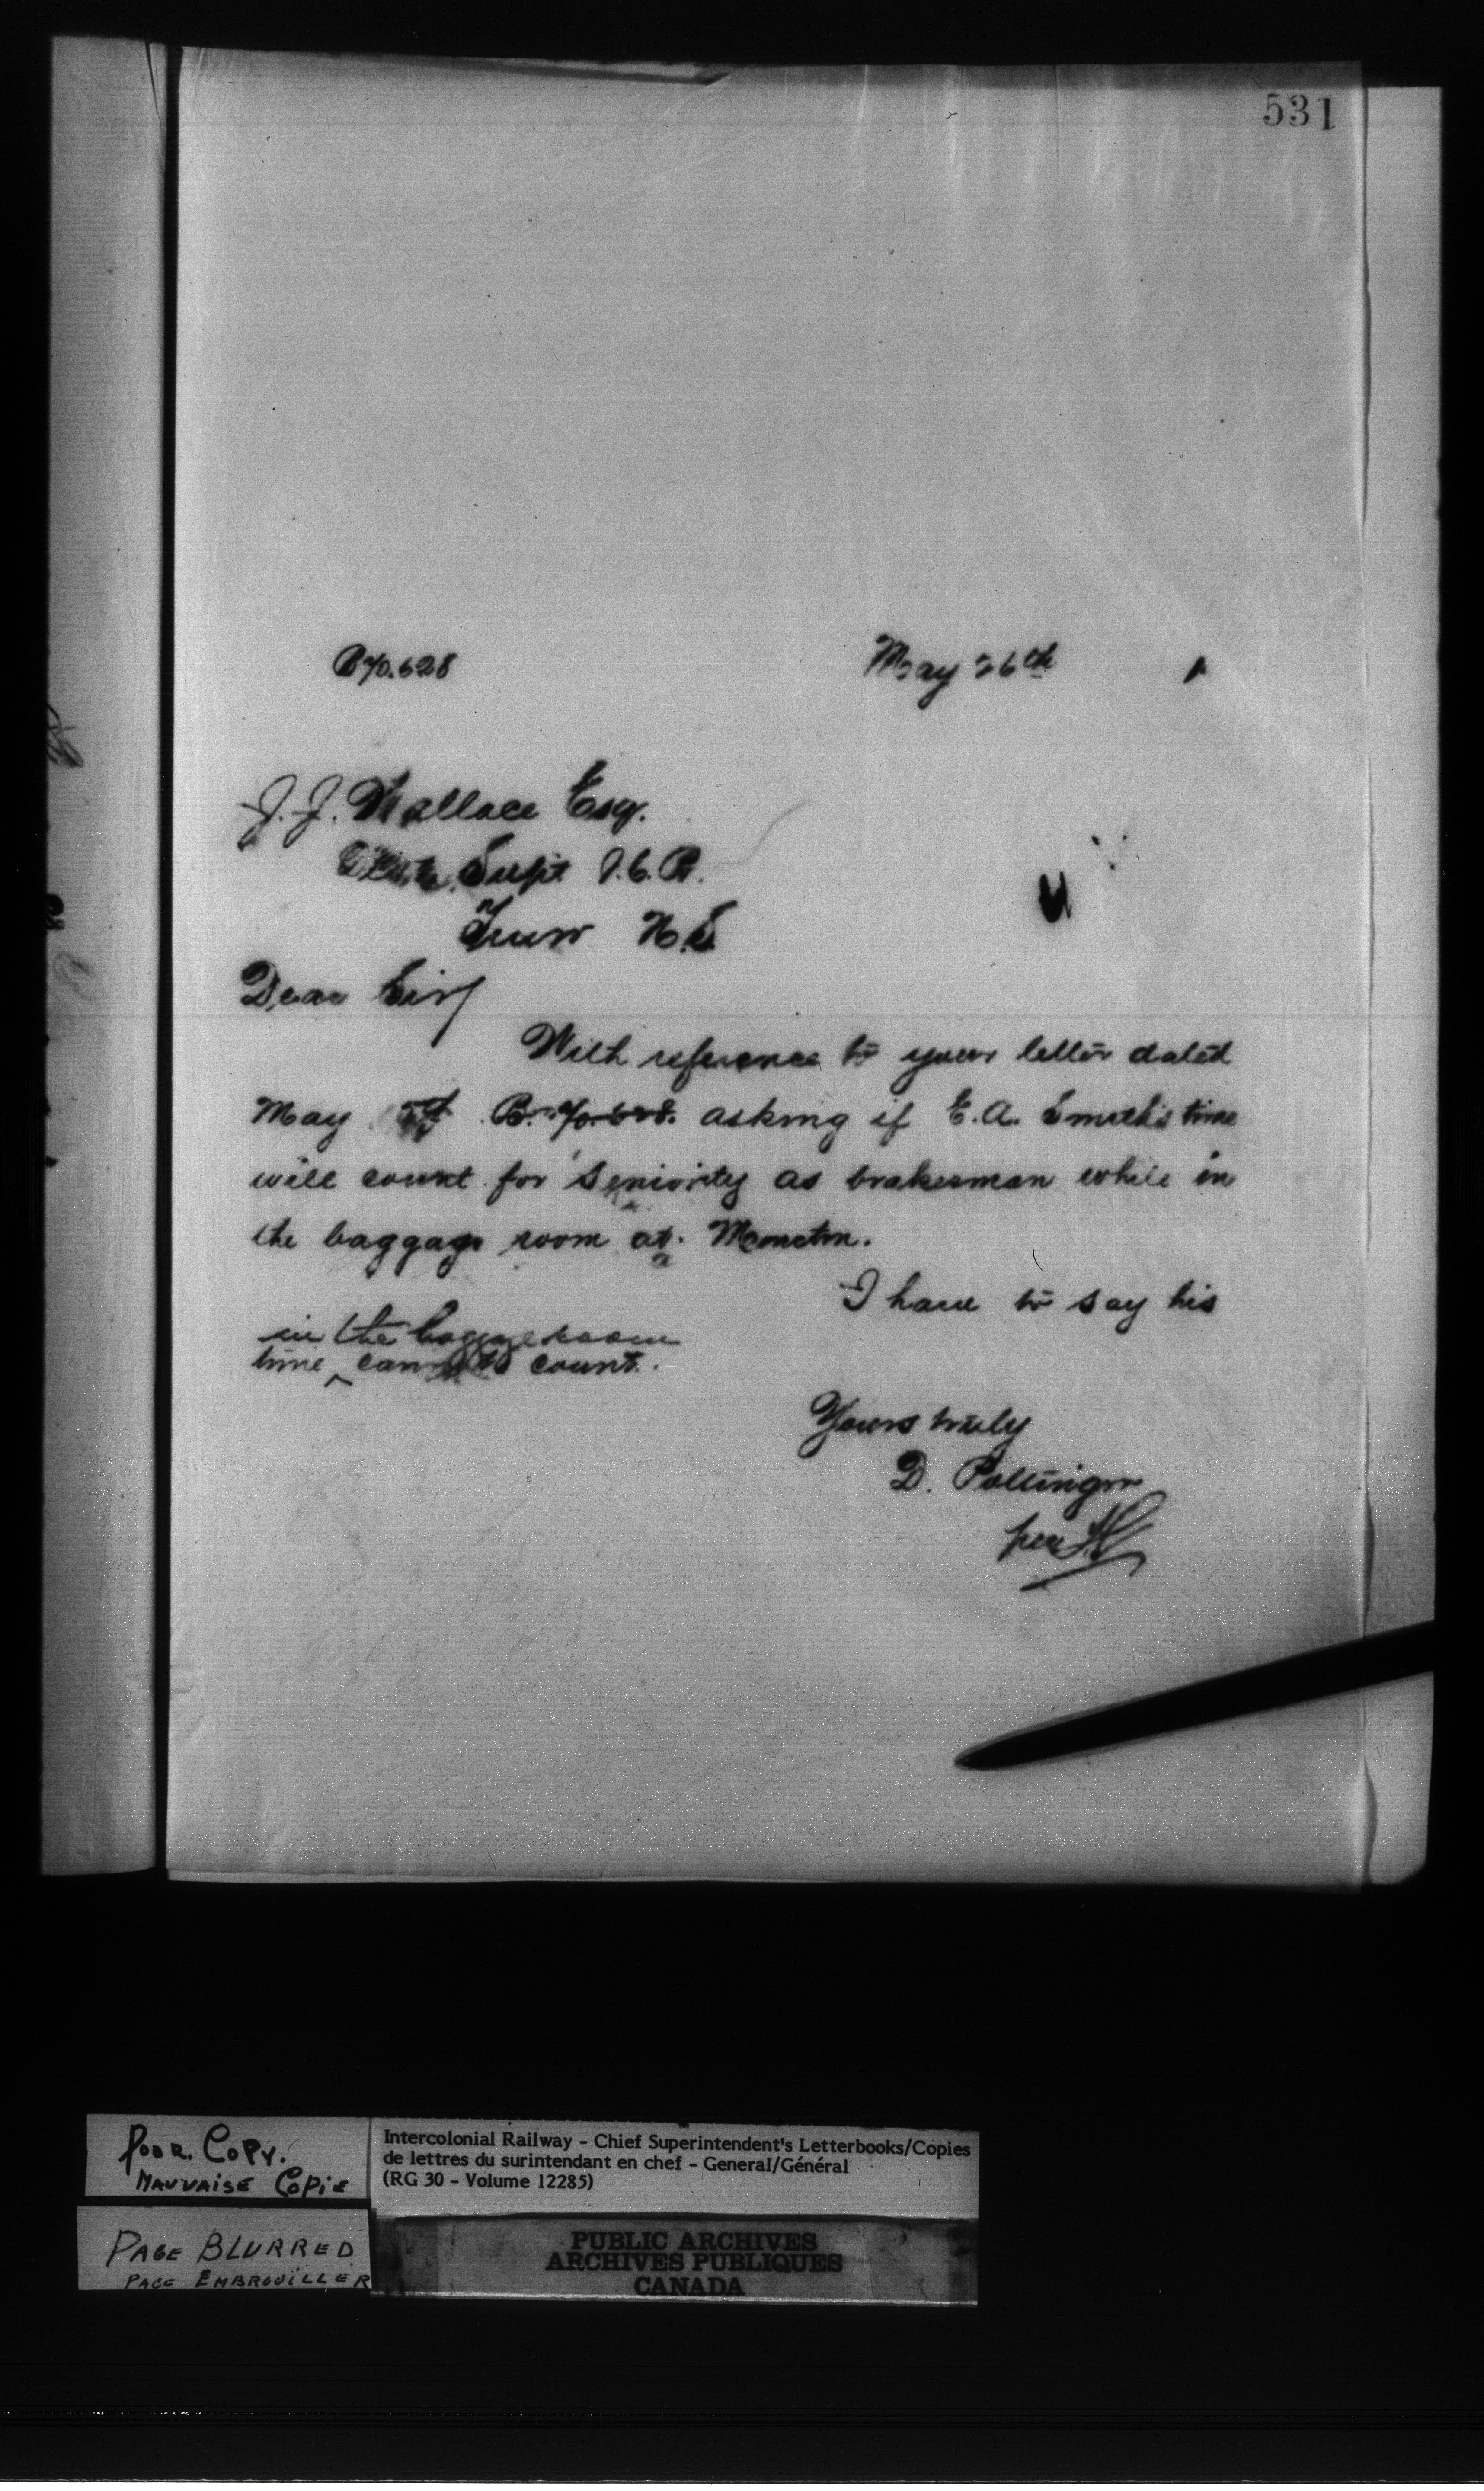 531
B 70.628 May 26th 1
J. J. Wallace Esq.
Dist. Supt. I.C.R.
Truro N.S
Dear Sir/
With reference to your letter dated
May B. 70.628. asking if E.A. Smith's time
will count for seniority as brakesman while in
the baggage room at Moncton.
I have to say his
in the baggage room
time ^ cannot count.
Yours truly
D. Pottinger
per
POOR. COPY.
MAUVAISE COPIE
PAGE BLURRED
PAGE EMBROUILLER
Intercolonial Railway - Chief Superintendent's Letterbooks/Copies
de lettres du surintendant en chef - General/Général
(RG 30 - Volume 12285)
PUBLIC ARCHIVES
ARCHIVES PUBLIQUES
CANADA